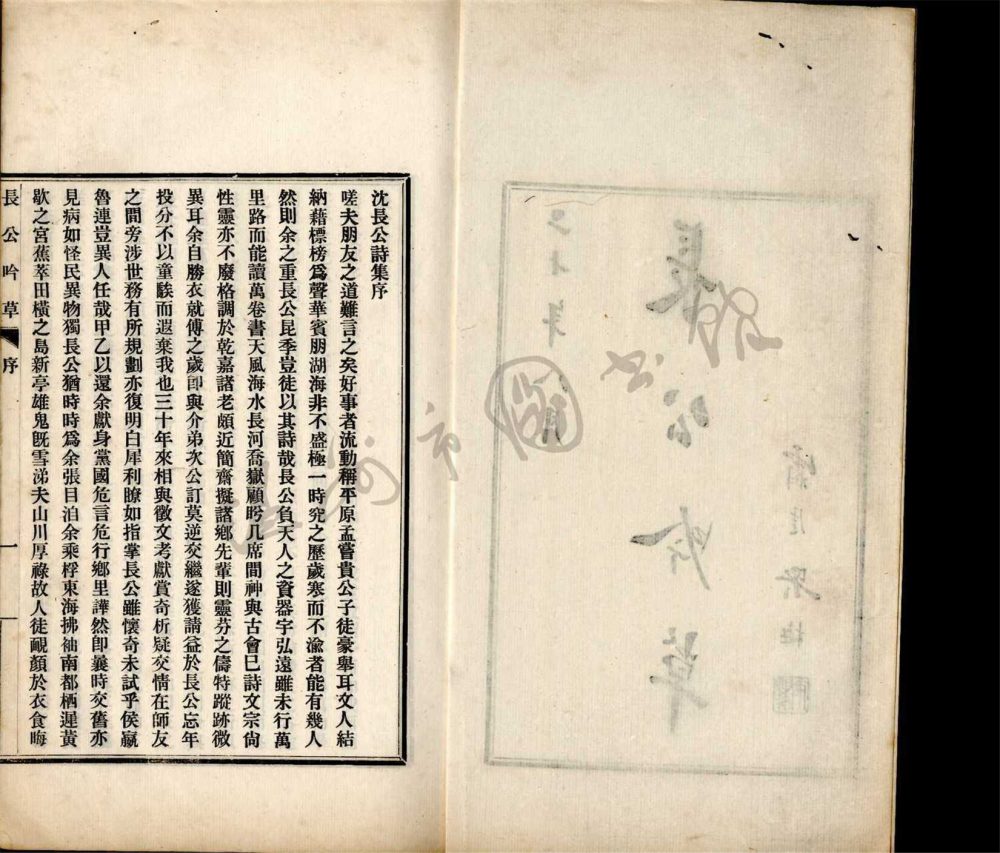 長公吟草
沈長公詩集序
嗟夫朋友之道難言之矣好事者流動稱平原孟嘗貴公子徒豪舉耳文人結
納藉標榜爲聲華賓朋湖海非不盛極一時究之歷歲寒而不渝者能有幾人
然則余之重長公昆季豈徒以其詩哉長公負天人之資器宇弘遠雖未行萬
里路而能讀萬卷書天風海水長河喬嶽顧盻几席間神與古會巳詩文宗尙
性靈亦不廢格調於乾嘉諸老頗近簡齋擬諸鄕先輩則靈芬之儔特蹤跡微
異耳余自勝衣就傅之歲卽與介弟次公訂莫逆交繼遂獲請益於長公忘年
投分不以童騃而遐棄我也三十年來相與徵文考獻賞奇析疑交情在師友
之間旁涉世務有所規劃亦復明白犀利瞭如指掌長公雖懷奇未試乎侯嬴
魯連豈異人任哉甲乙以還余獻身黨國危言危行鄕里譁然卽曩時交舊亦
見病如怪民異物獨長公猶時時爲余張目洎余乘桴東海拂袖南都栖遲黃
歇之宮蕉萃田橫之島新亭雄鬼旣雪涕夫山川厚祿故人徒靦顏於衣食晦
長公吟草 序 一